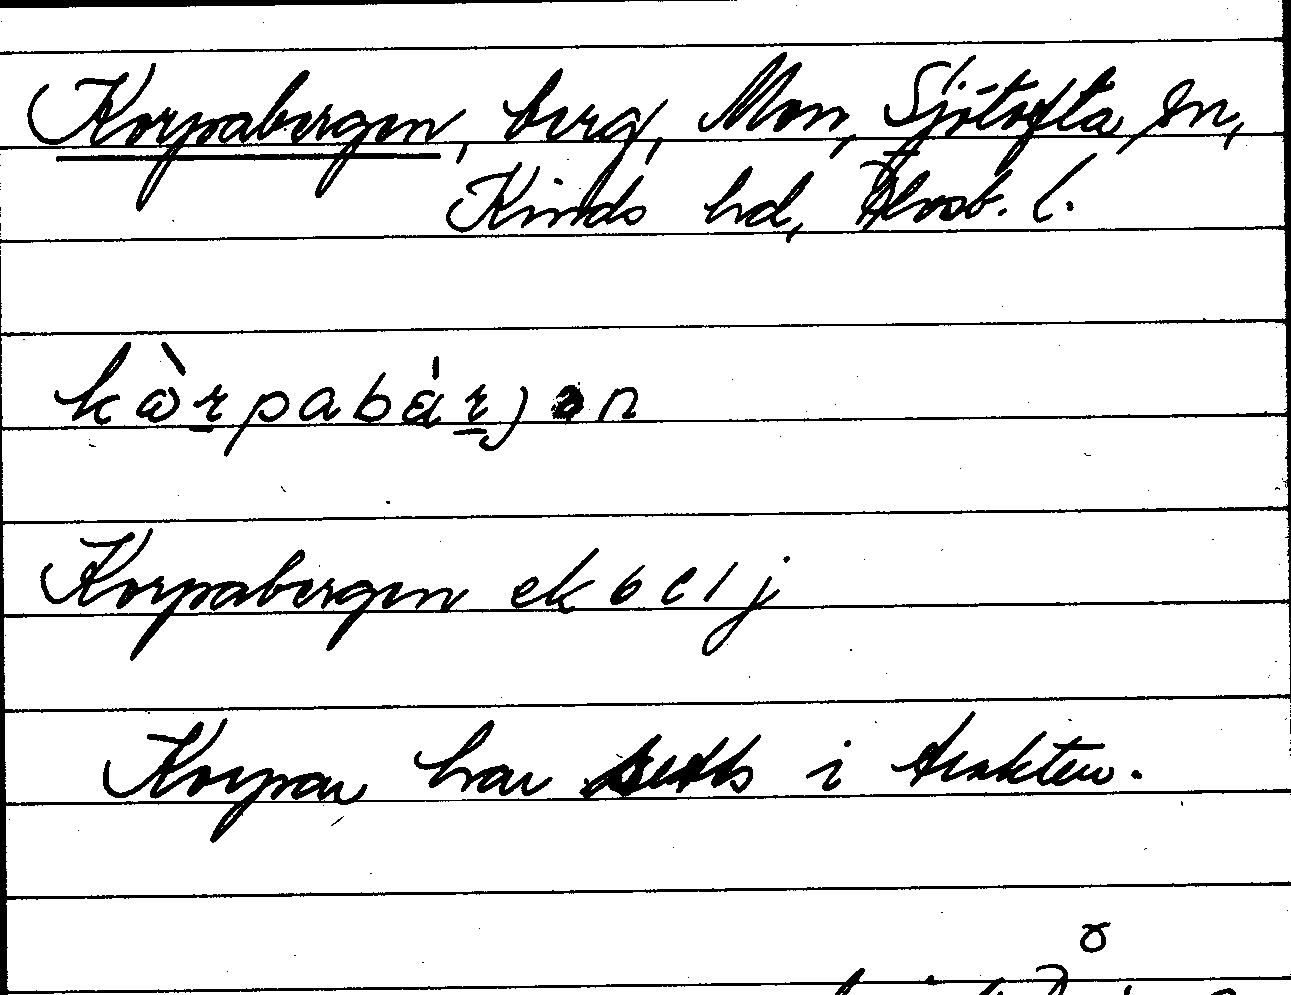 Korpabergen, berg, Mon, Sjötofta sn,
Kinds hd, Älvsb. l.
kɷ̀rpabárjən
Korpabergen ek 6 e 1 j
Korpar har setts i trakten.